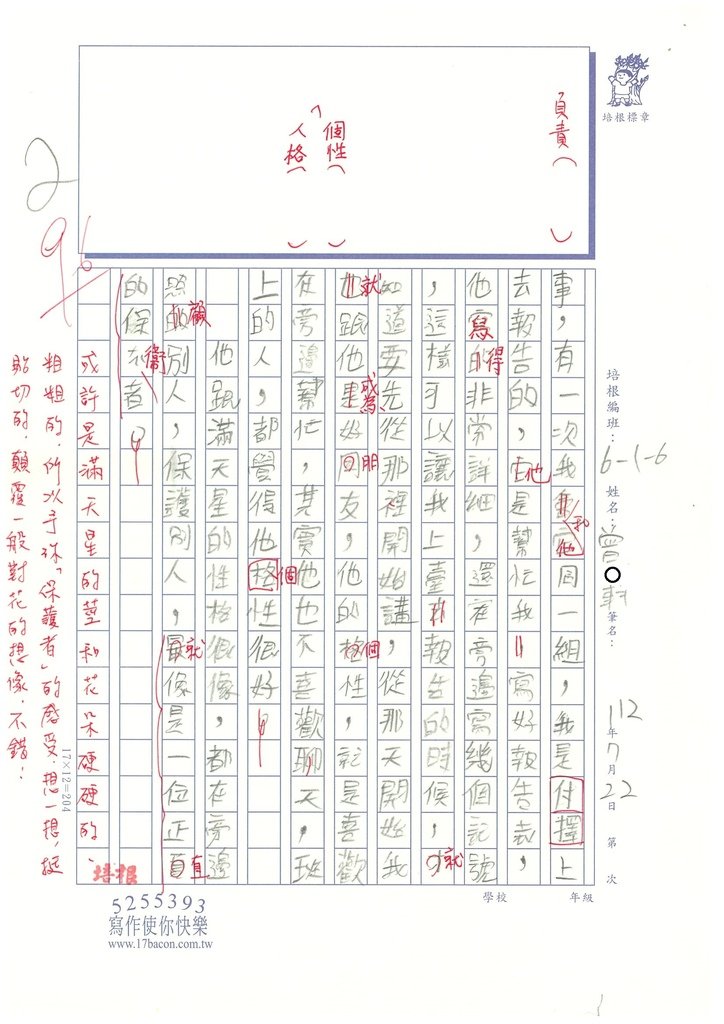 培根標章
負責（ ）
「個性（ ）
人格（ ）
2
96
培根編班：6-1-6 姓名：曾 軒 筆名： 112年7月22日 第 次
學校 年級
事，有一次我和他同一組，我是付擇上
去報告的，他是幫忙我寫好報告表，
他寫得非常詳細，還在旁邊寫幾個記號，
，這樣子以讓我上臺報告的時候，就
知道要先從那裡開始講，從那天開始我
就跟他成為好朋友，他的個性，就是喜歡
在旁邊幫忙，其實他也不喜歡聊天，班
上的人，都覺得他個性很好
他跟滿天星的性格很像，都在旁邊
照顧別人，保護別人，就像是一位正直
的保衛者
或許是滿天星的莖和花朵硬硬的、
粗粗的，所以予妳「保護者」的感受，想一想，挺
貼切的，顛覆一般對花的想像，不錯！
17×12=204
培根
5255393
寫作使你快樂
www.17bacon.com.tw